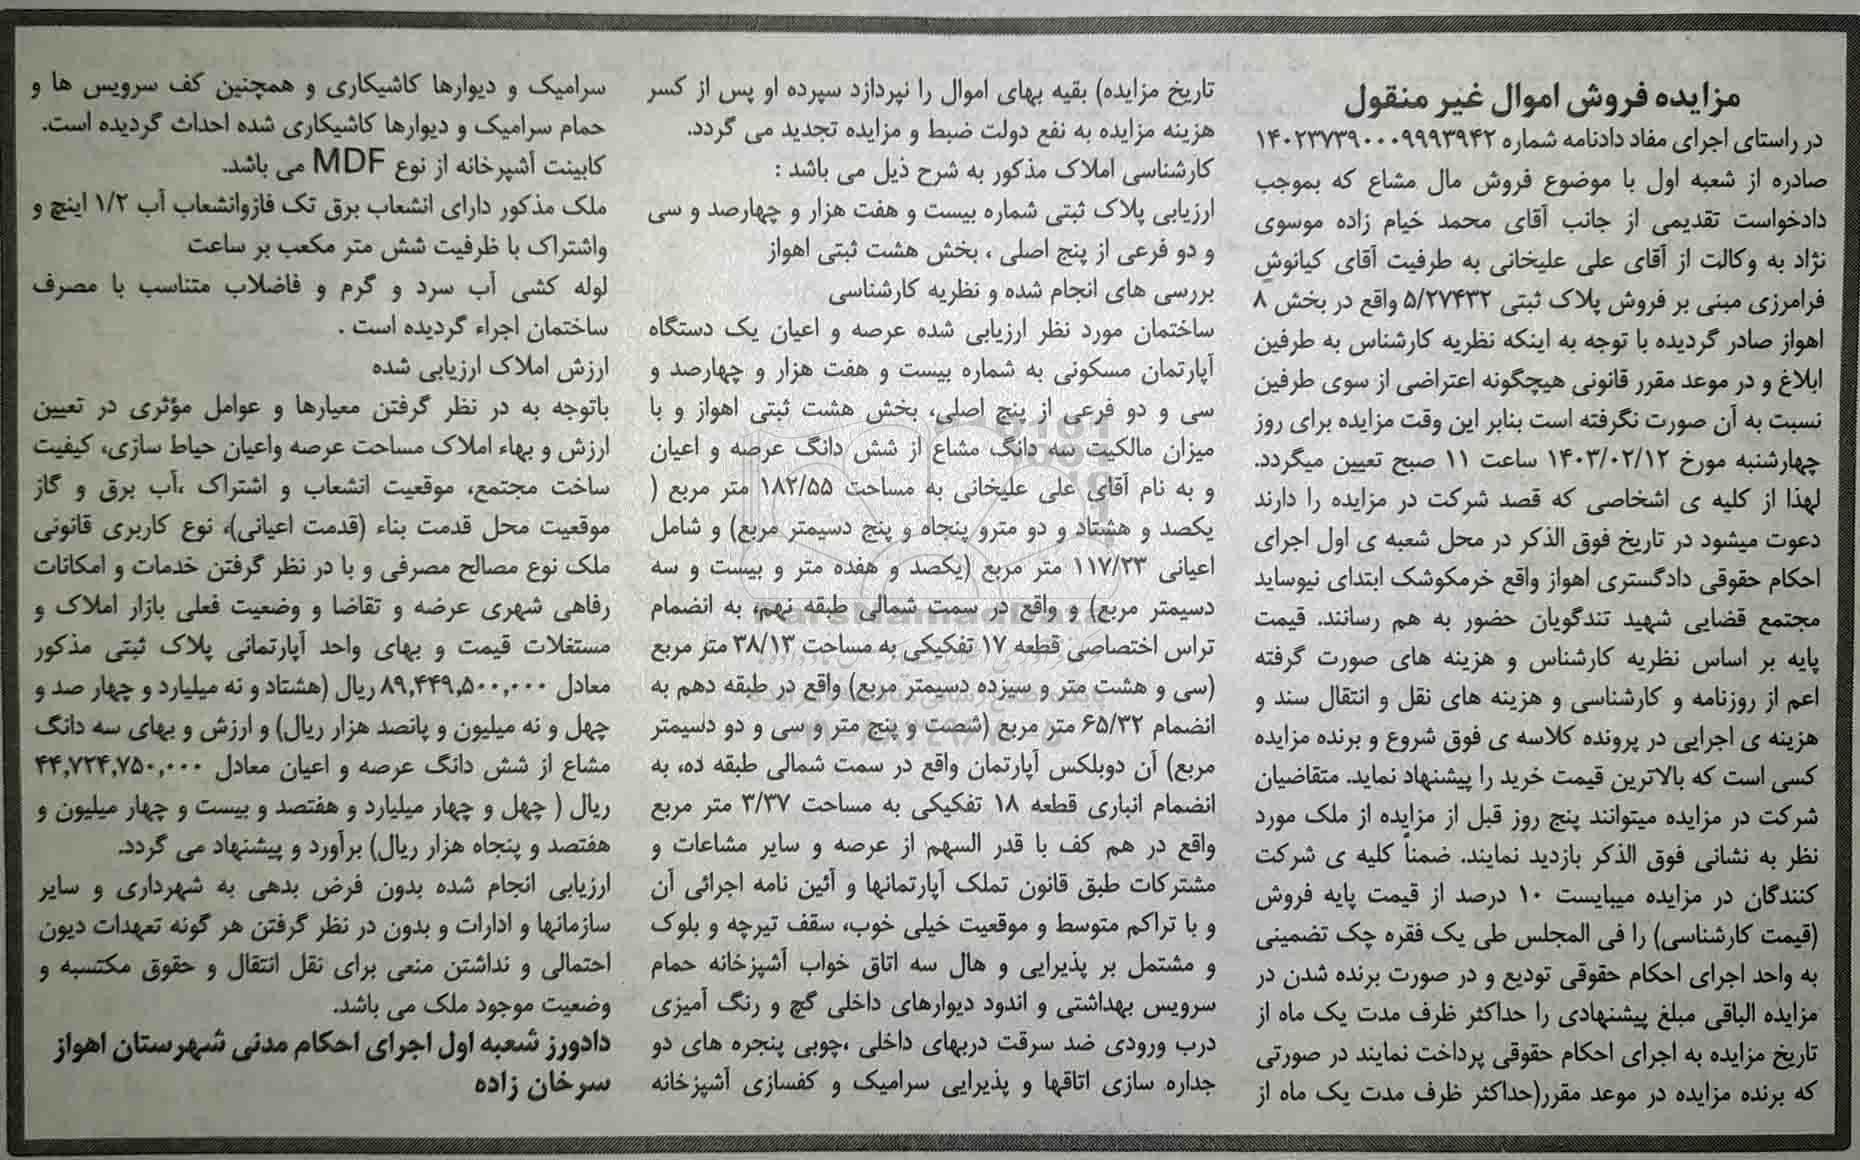 مزایده فروش اموال غیر منقول
در راستای اجرای مفاد دادنامه شماره ۱۴۰۲۳۷۳۹۰۰۰۹۹۹۳۹۴۲
صادره از شعبه اول با موضوع فروش مال مشاع که بموجب
دادخواست تقدیمی از جانب آقای محمد خیام زاده موسوی
نژاد به وکالت از آقای علی علیخانی به طرفیت آقای کیانوش
فرامرزی مبنی بر فروش پلاک ثبتی ۵/۲۷۴۳۲ واقع در بخش ۸
اهواز صادر گردیده با توجه به اینکه نظریه کارشناس به طرفین
ابلاغ و در موعد مقرر قانونی هیچگونه اعتراضی از سوی طرفین
نسبت به آن صورت نگرفته است بنابر این وقت مزایده برای روز
چهارشنبه مورخ ۱۴۰۳/۰۲/۱۲ ساعت ۱۱ صبح تعیین میگردد.
لهذا از کلیه ی اشخاصی که قصد شرکت در مزایده را دارند
دعوت میشود در تاریخ فوق الذکر در محل شعبه ی اول اجرای
احکام حقوقی دادگستری اهواز واقع خرمکوشک ابتدای نیوساید
مجتمع قضایی شهید تندگویان حضور به هم رسانند. قیمت
پایه بر اساس نظریه کارشناس و هزینه های صورت گرفته
اعم از روزنامه و کارشناسی و هزینه های نقل و انتقال سند و
هزینه ی اجرایی در پرونده کلاسه ی فوق شروع و برنده مزایده
کسی است که بالاترین قیمت خرید را پیشنهاد نماید. متقاضیان
شرکت در مزایده میتوانند پنج روز قبل از مزایده از ملک مورد
نظر به نشانی فوق الذکر بازدید نمایند. ضمناً کلیه ی شرکت
کنندگان در مزایده میبایست ۱۰ درصد از قیمت پایه فروش
(قیمت کارشناسی) را فی المجلس طی یک فقره چک تضمینی
به واحد اجرای احکام حقوقی تودیع و در صورت برنده شدن در
مزایده الباقی مبلغ پیشنهادی را حداکثر ظرف مدت یک ماه از
تاریخ مزایده به اجرای احکام حقوقی پرداخت نمایند در صورتی
که برنده مزایده در موعد مقرر(حداکثر ظرف مدت یک ماه از
تاریخ مزایده) بقیه بهای اموال را نپردازد سپرده او پس از کسر
هزینه مزایده به نفع دولت ضبط و مزایده تجدید می گردد.
کارشناسی املاک مذکور به شرح ذیل می باشد :
ارزیابی پلاک ثبتی شماره بیست و هفت هزار و چهارصد و سی
و دو فرعی از پنج اصلی ، بخش هشت ثبتی اهواز
بررسی های انجام شده و نظریه کارشناسی
ساختمان مورد نظر ارزیابی شده عرصه و اعیان یک دستگاه
آپارتمان مسکونی به شماره بیست و هفت هزار و چهارصد و
سی و دو فرعی از پنج اصلی، بخش هشت ثبتی اهواز و با
میزان مالکیت سه دانگ مشاع از شش دانگ عرصه و اعیان
و به نام آقای علی علیخانی به مساحت ۱۸۲/۵۵ متر مربع (
یکصد و هشتاد و دو مترو پنجاه و پنج دسیمتر مربع) و شامل
اعیانی ۱۱۷/۲۳ متر مربع (یکصد و هفده متر و بیست و سه
دسیمتر مربع) و واقع در سمت شمالی طبقه نهم، به انضمام
تراس اختصاصی قطعه ۱۷ تفکیکی به مساحت ۳۸/۱۳ متر مربع
(سی و هشت متر و سیزده دسیمتر مربع) واقع در طبقه دهم به
انضمام ۶۵/۳۲ متر مربع (شصت و پنج متر و سی و دو دسیمتر
مربع) آن دوبلکس آپارتمان واقع در سمت شمالی طبقه ده، به
انضمام انباری قطعه ۱۸ تفکیکی به مساحت ۳/۳۷ متر مربع
واقع در هم کف با قدر السهم از عرصه و سایر مشاعات و
مشترکات طبق قانون تملک آپارتمانها و آئین نامه اجرائی آن
و با تراکم متوسط و موقعیت خیلی خوب، سقف تیرچه و بلوک
و مشتمل بر پذیرایی و هال سه اتاق خواب آشپزخانه حمام
سرویس بهداشتی و اندود دیوارهای داخلی گچ و رنگ آمیزی
درب ورودی ضد سرقت دربهای داخلی ،چوبی پنجره های دو
جداره سازی اتاقها و پذیرایی سرامیک و کفسازی آشپزخانه
سرامیک و دیوارها کاشیکاری و همچنین کف سرویس ها و
حمام سرامیک و دیوارها کاشیکاری شده احداث گردیده است.
کابینت آشپرخانه از نوع MDF می باشد.
ملک مذکور دارای انشعاب برق تک فازوانشعاب آب ۱/۲ اینچ و
واشتراک با ظرفیت شش متر مکعب بر ساعت
لوله کشی آب سرد و گرم و فاضلاب متناسب با مصرف
ساختمان اجراء گردیده است .
ارزش املاک ارزیابی شده
باتوجه به در نظر گرفتن معیارها و عوامل مؤثری در تعیین
ارزش و بهاء املاک مساحت عرصه واعیان حیاط سازی، کیفیت
ساخت مجتمع، موقعیت انشعاب و اشتراک ،آب برق و گاز
موقعیت محل قدمت بناء (قدمت اعیانی)، نوع کاربری قانونی
ملک نوع مصالح مصرفی و با در نظر گرفتن خدمات و امکانات
رفاهی شهری عرضه و تقاضا و وضعیت فعلی بازار املاک و
مستغلات قیمت و بهای واحد آپارتمانی پلاک ثبتی مذکور
معادل ۸۹,۴۴۹,۵۰۰,۰۰۰ ریال (هشتاد و نه میلیارد و چهار صد و
چهل و نه میلیون و پانصد هزار ریال) و ارزش و بهای سه دانگ
مشاع از شش دانگ عرصه و اعیان معادل ۴۴,۷۲۴,۷۵۰,۰۰۰
ریال ( چهل و چهار میلیارد و هفتصد و بیست و چهار میلیون و
هفتصد و پنجاه هزار ریال) برآورد و پیشنهاد می گردد.
ارزیابی انجام شده بدون فرض بدهی به شهرداری و سایر
سازمانها و ادارات و بدون در نظر گرفتن هر گونه تعهدات دیون
احتمالی و نداشتن منعی برای نقل انتقال و حقوق مکتسبه و
وضعیت موجود ملک می باشد.
دادورز شعبه اول اجرای احکام مدنی شهرستان اهواز
سرخان زاده